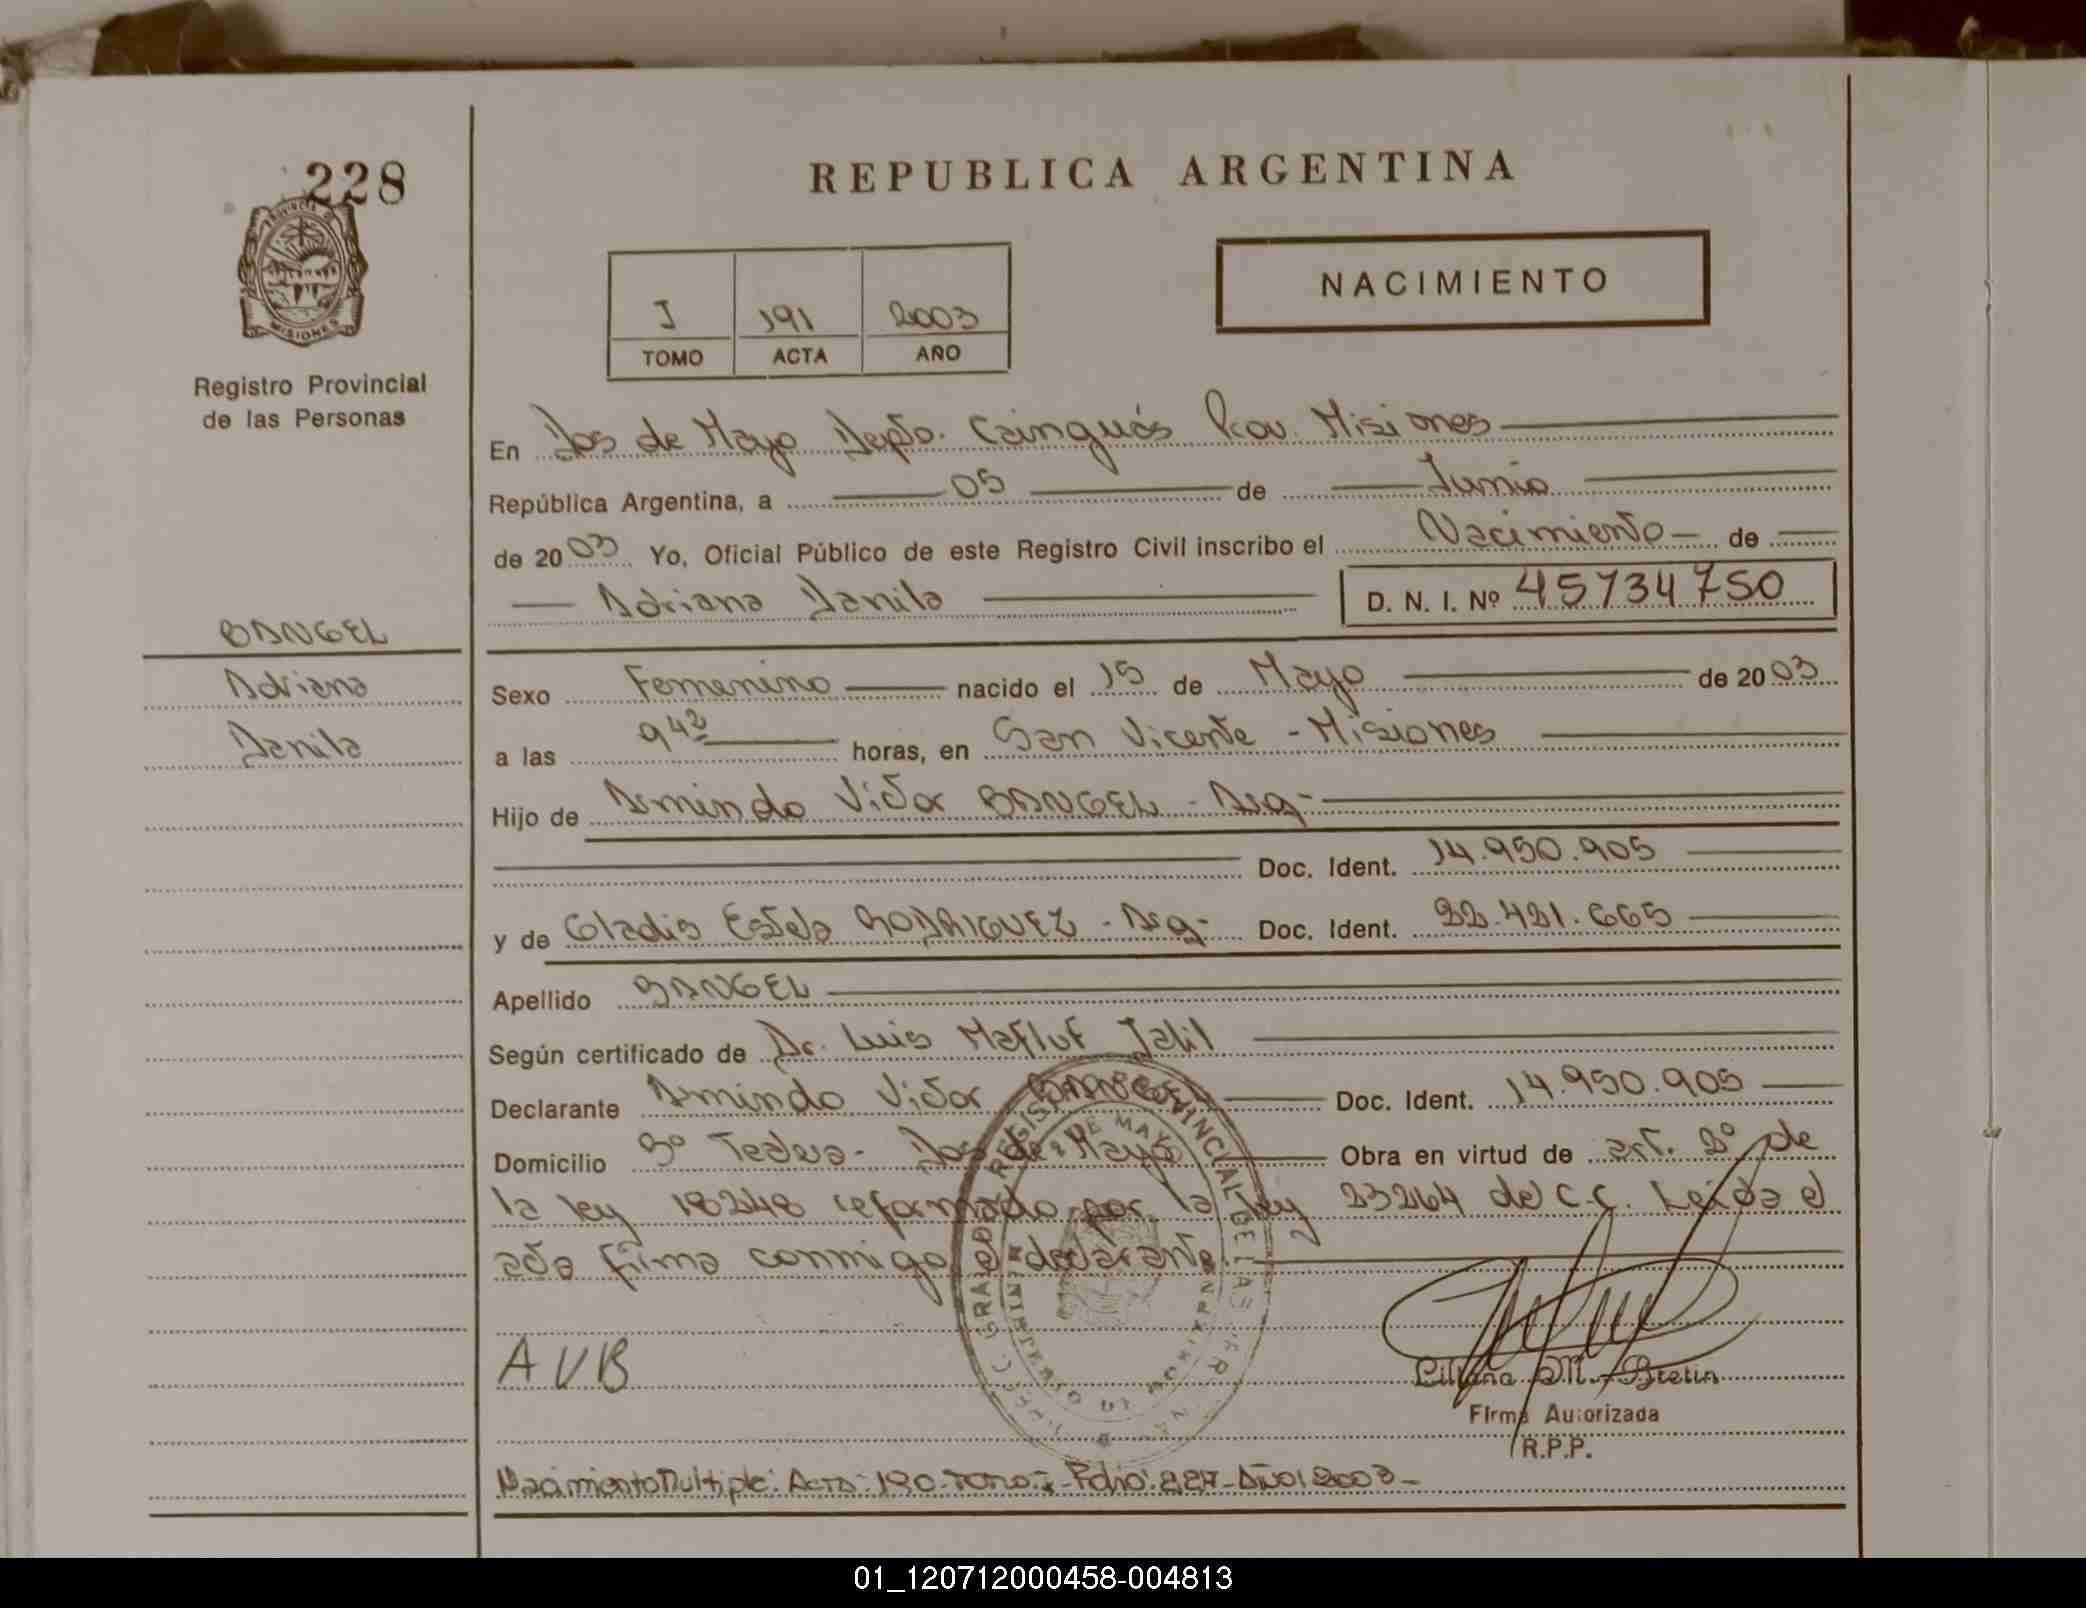 228
REPUBLICA ARGENTINA
PROVINCIA DE
MISIONES
Registro Provincial
de las Personas
NACIMIENTO
I 191 2003
TOMO ACTA AÑO
En Dos de Mayo Depto. Cainguás Prov. Misiones
República Argentina, a 05 de Junio
de 2003 Yo, Oficial Público de este Registro Civil inscribo el Nacimiento de
Adriana Danila D. N. I. Nº 45734750
BANGEL
Adriana
Danila
Sexo Femenino nacido el 15 de Mayo de 2003
a las 9 42 horas, en San Vicente - Misiones
Hijo de Armindo Victor BANGEL - Arg-
Doc. Ident. 14.950.905
y de Gladis Estela RODRIGUEZ - Arg- Doc. Ident. 22.421.665
Apellido BANGEL
Según certificado de Dr. Luis Jalil
Declarante Armindo Victor BANGEL Doc. Ident. 14.950.905
Domicilio Bº - Dos de Mayo Obra en virtud de art. 2º de
la ley 18248 reformado por la ley 23264 del C.C. Leida el
acta firma conmigo el declarante.
AVB
Liliana M. Bretin
Firma Autorizada
R.P.P.
Nacimiento Multiple: Acta: 190-Tomo: I-Folio: 227-Año: 2003-
01_120712000458-004813